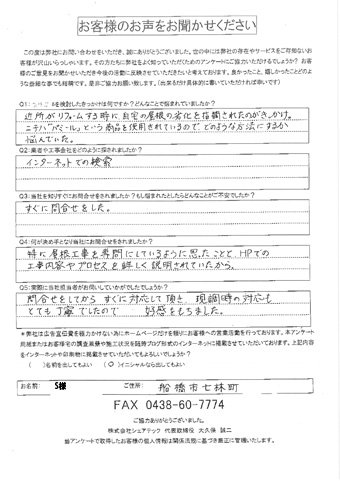 お客様のお声をお聞かせください
この度は弊社にお問い合わせをいただき、誠にありがとうございました。世の中には弊社の存在やサービスをご存知ないお
客様が沢山いらっしゃいます。その方たちに弊社をよく知っていただくためのアンケートにご協力いただけるでしょうか？お客様
のご意見をお聞かせいただき今後の活動に反映させていただきたいと考えております。良かったこと、嬉しかったことどのよう
な些細な事でも結構です。是非ご協力お願い致します。(出来るだけ具体的に書いていただければ幸いです)
を検討したきっかけは何ですか？どんなことで悩まれていましたか？
近所がリフォームする時に自宅の屋根の劣化を指摘されたのがきっかけ。
ニチハ「パミール」という商品を使用されているので、どのような方法にするか
悩んでいた。
Q2：業者や工事会社をどのように探されましたか？
インターネットでの検索
Q3：当社を知りすぐにお問合せをされましたか？もし悩まれたとしたらどんなことがご不安でしたか？
すぐに問合せをした。
Q4：何が決め手となり当社にお問合せをされましたか？
特に屋根工事を専門にしているように思ったことと、HPでの
工事内容やプロセスを詳しく説明されていたから。
Q5：実際に当社担当者がお伺いしていかがでしたでしょうか？
問合せをしてからすぐに対応して頂き、現調時の対応も
とても丁寧でしたので 好感をもちました。
＊弊社は広告宣伝費を極力かけない為にホームページだけを頼りにお客様への営業活動を行っております。本アンケート
用紙またはお客様宅の調査風景や施工状況を随時ブログ形式のインターネットに掲載させていただいております。上記内容
をインターネットや印刷物に掲載させていただいてもよろしいでしょうか？
( )名前を出してもよい (○)イニシャルなら出してもよい
お名前: S様 ご住所: 船橋市七林町
FAX 0438-60-7774
ご協力ありがとうございました。
株式会社シェアテック 代表取締役 大久保 誠二
当アンケートで取得したお客様の個人情報は関係法規に基づき厳正に管理いたします。